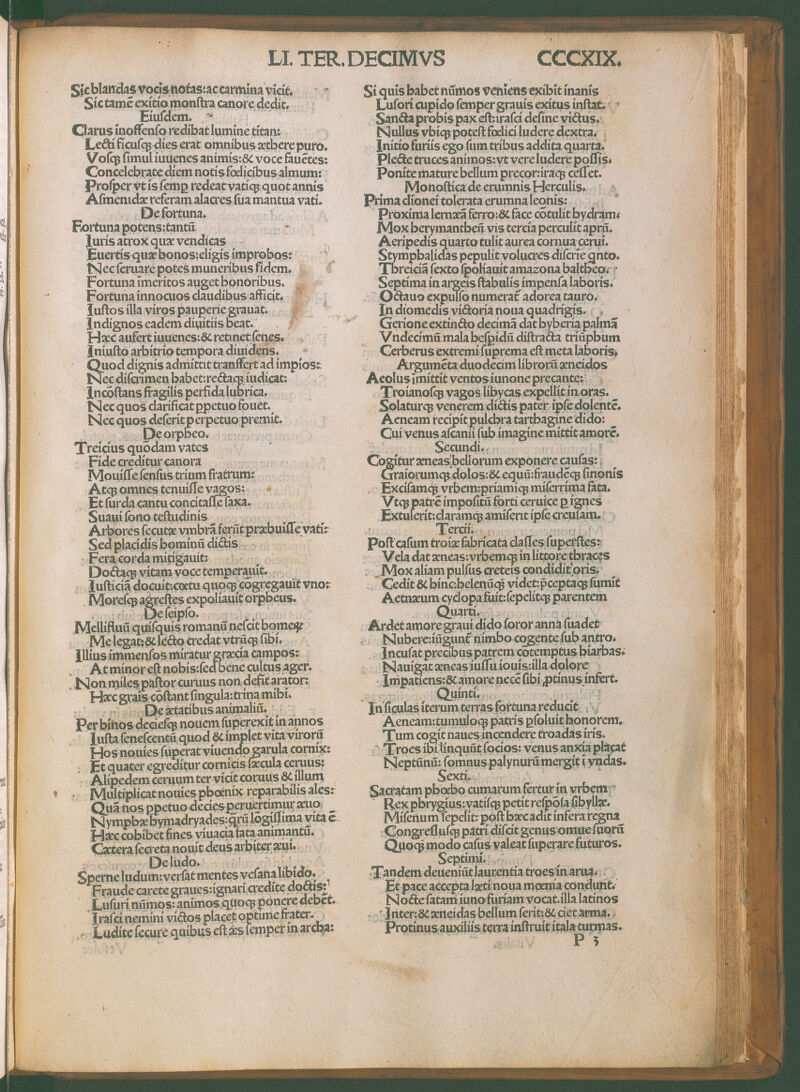 LI. TER. DECIMVS CCCXIX.
Sic blandas vocis notas:ac carmina vicit.
Sic tamē exitio monſtra canore dedit.
Eiuſdem.
Clarus inoffenſo redibat lumine titan:
Lecti ficuſq; dies erat omnibus æthere puro.
Voſq; ſimul iuuenes animis:& voce fauētes:
Concelebrate diem notis fœlicibus almum:
Proſper vt is ſemp redeat vatiq; quot annis
Aſmenidæ referam alacres ſua mantua vati.
De fortuna.
Fortuna potens:tantū
Iuris atrox quæ vendicas
Euertis quæ bonos:eligis improbos:
Nec ſeruare potes muneribus fidem.
Fortuna imeritos auget honoribus.
Fortuna innocuos claudibus afficit.
Iuſtos illa viros pauperie grauat.
Indignos eadem diuitiis beat.
Hæc aufert iuuenes:& retinet ſenes.
Iniuſto arbitrio tempora diuidens.
Quod dignis admittit tranſfert ad impios:
Nec diſcrimen habet:rectaq; iudicat:
Incōſtans fragilis perfida lubrica.
Nec quos clarificat ppetuo fouet.
Nec quos deſerit perpetuo premit.
De orpheo.
Treicius quodam vates
Fide creditur canora
Mouiſſe ſenſus trium fratrum:
Atq; omnes tenuiſſe vagos:
Et ſurda cantu concitaſſe ſaxa.
Suaui ſono teſtudinis
Arbores ſecutæ vmbrā ferūt præbuiſſe vati:
Sed placidis hominū dictis
Fera corda mitigauit:
Doctaq; vitam voce temperauit.
Iuſticiā docuit:cœtu quoq; cōgregauit vno:
Moreſq; agreſtes expoliauit orpheus.
De ſeipſo.
Mellifluū quiſquis romanū neſcit homeꝝ
Me legat:& lecto credat vtrūq; ſibi.
Illius immenſos miratur græcia campos:
At minor eſt nobis:ſed bene cultus ager.
Non miles paſtor curuus non defit arator:
Hæc grais cōſtant ſingula:trina mihi.
De ætatibus animaliū.
Per binos decieſq; nouem ſuperexit in annos
Iuſta ſeneſcentū quod & implet vita virorū
Hos nouies ſuperat viuendo garula cornix:
Et quater egreditur cornicis ſæcula ceruus:
Alipedem ceruum ter vicit coruus & illum
Multiplicat nouies phœnix reparabilis ales:
Quā nos ppetuo decies peruertimur æuo
Nymphæ hymadryades:q̄rū lōgiſſima vita ē
Hæc cohibet fines viuacia fata animantū.
Cætera ſecreta nouit deus arbiter æui.
De ludo.
Sperne ludum:verſat mentes veſana libido.
Fraude carete graues:ignari credite doctis:
Luſuri nūmos: animos quoq; ponere debēt.
Iraſci nemini victos placet optime frater.
Ludite ſecure quibus eſt æs ſemper in archa:
Si quis habet nūmos veniens exibit inanis
Luſori cupido ſemper grauis exitus inſtat.
Sancta probis pax eſt:iraſci deſine victus.
Nullus vbiq; poteſt fœlici ludere dextra.
Initio furiis ego ſum tribus addita quarta.
Plecte truces animos:vt vere ludere poſſis.
Ponite mature bellum precor:iraq; ceſſet.
Monoſtica de erumnis Herculis.
Prima dionei tolerata erumna leonis:
Proxima lernæā ferro:& face cōtulit hydram:
Mox herymantheū vis tercia perculit aprū.
Aeripedis quarto tulit aurea cornua cerui.
Stymphalidas pepulit volucres diſcrie qnto.
Threiciā ſexto ſpoliauit amazona baltheo:
Septima in argeis ſtabulis impenſa laboris.
Octauo expulſo numerat adorea tauro.
In diomedis victoria noua quadrigis.
Gerione extincto decimā dat hyberia palmā
Vndecimū mala heſpidū diſtracta triūphum
Cerberus extremi ſuprema eſt meta laboris,
Argumēta duodecim librorū æneidos
Aeolus imittit ventos iunone precante:
Troianoſq; vagos libycas expellit in oras.
Solaturq; venerem dictis pater ipſe dolentē.
Aeneam recipit pulchra carthagine dido:
Cui venus aſcanii ſub imagine mittit amorē.
Secundi.
Cogitur æneas bellorum exponere cauſas:
Graiorumq; dolos:& equū:fraudēq; ſinonis
Exciſamq; vrbem:priamiq; miſerrima fata.
Vtq; patrē impoſitū forti ceruice p ignes
Extulerit:claramq; amiſerit ipſe creuſam.
Tercii.
Poſt caſum troiæ fabricata claſſes ſuperſtes:
Vela dat æneas:vrbemq; in littore thraces
Mox aliam pulſus creteis condidit oris.
Cedit & hinc:helenūq; videt:p̄ceptaq; ſumit
Aetnæum cyclopa fuit:ſepelitq; parentem
Quarti.
Ardet amore graui dido ſoror anna ſuadet
Nubere:iūgunt nimbo cogente ſub antro.
Incuſat precibus patrem cōtemptus hiarbas.
Nauigat æneas iuſſu iouis:illa dolore
Impatiens:& amore necē ſibi ptinus infert.
Quinti.
In ſiculas iterum terras fortuna reducit
Aeneam:tumuloq; patris pſoluit honorem.
Tum cogit naues incendere troadas iris.
Troes ibi linquūt ſocios: venus anxia placat
Neptūnū: ſomnus palynurū mergit ī vndas.
Sexti.
Sacratam phœbo cumarum fertur in vrbem
Rex phrygius:vatiſq; petit reſpōſa ſibyllæ.
Miſenum ſepelit: poſt hæc adit infera regna
Congreſſuſq; patri diſcit genus omne ſuorū
Quoq; modo caſus valeat ſuperare futuros.
Septimi.
Tandem deueniūt laurentia troes in arua.
Et pace accepta læti noua mœnia condunt.
Nocte ſatam iuno furiam vocat.illa latinos
Inter:& æneidas bellum ſerit:& ciet arma.
Protinus auxiliis terra inſtruit itala turmas.
P 3